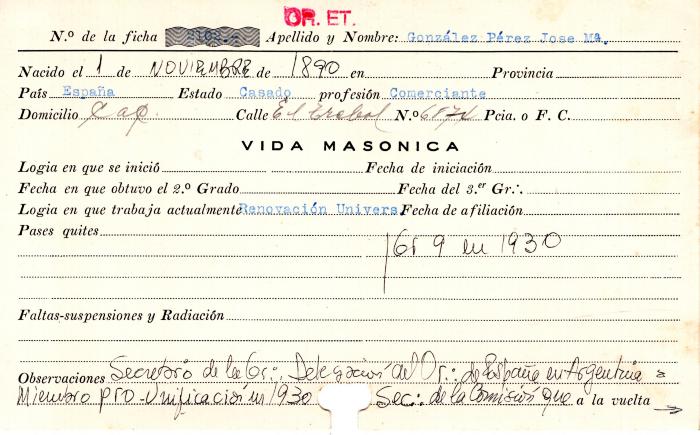 OR. ET.
N.º de la ficha Apellido y Nombre: González Pérez Jose Mª.
Nacido el 1 de NOVIEMBRE de 1890 en Provincia
País España Estado Casado profesión Comerciante
Domicilio Cap. Calle El Trebol N.º 6174 Pcia. o F. C.
VIDA MASONICA
Logia en que se inició Fecha de iniciación
Fecha en que obtuvo el 2.º Grado Fecha del 3.er Gr∴
Logia en que trabaja actualmente Renovación Univers. Fecha de afiliación
Pases quites
Gr 9 en 1930
Faltas-suspensiones y Radiación
Observaciones Secretario de la Gr∴ Delegación del Or∴ de España en Argentina
Miembro PRO-Unificación en 1930 Sec∴ de la Comisión que a la vuelta →